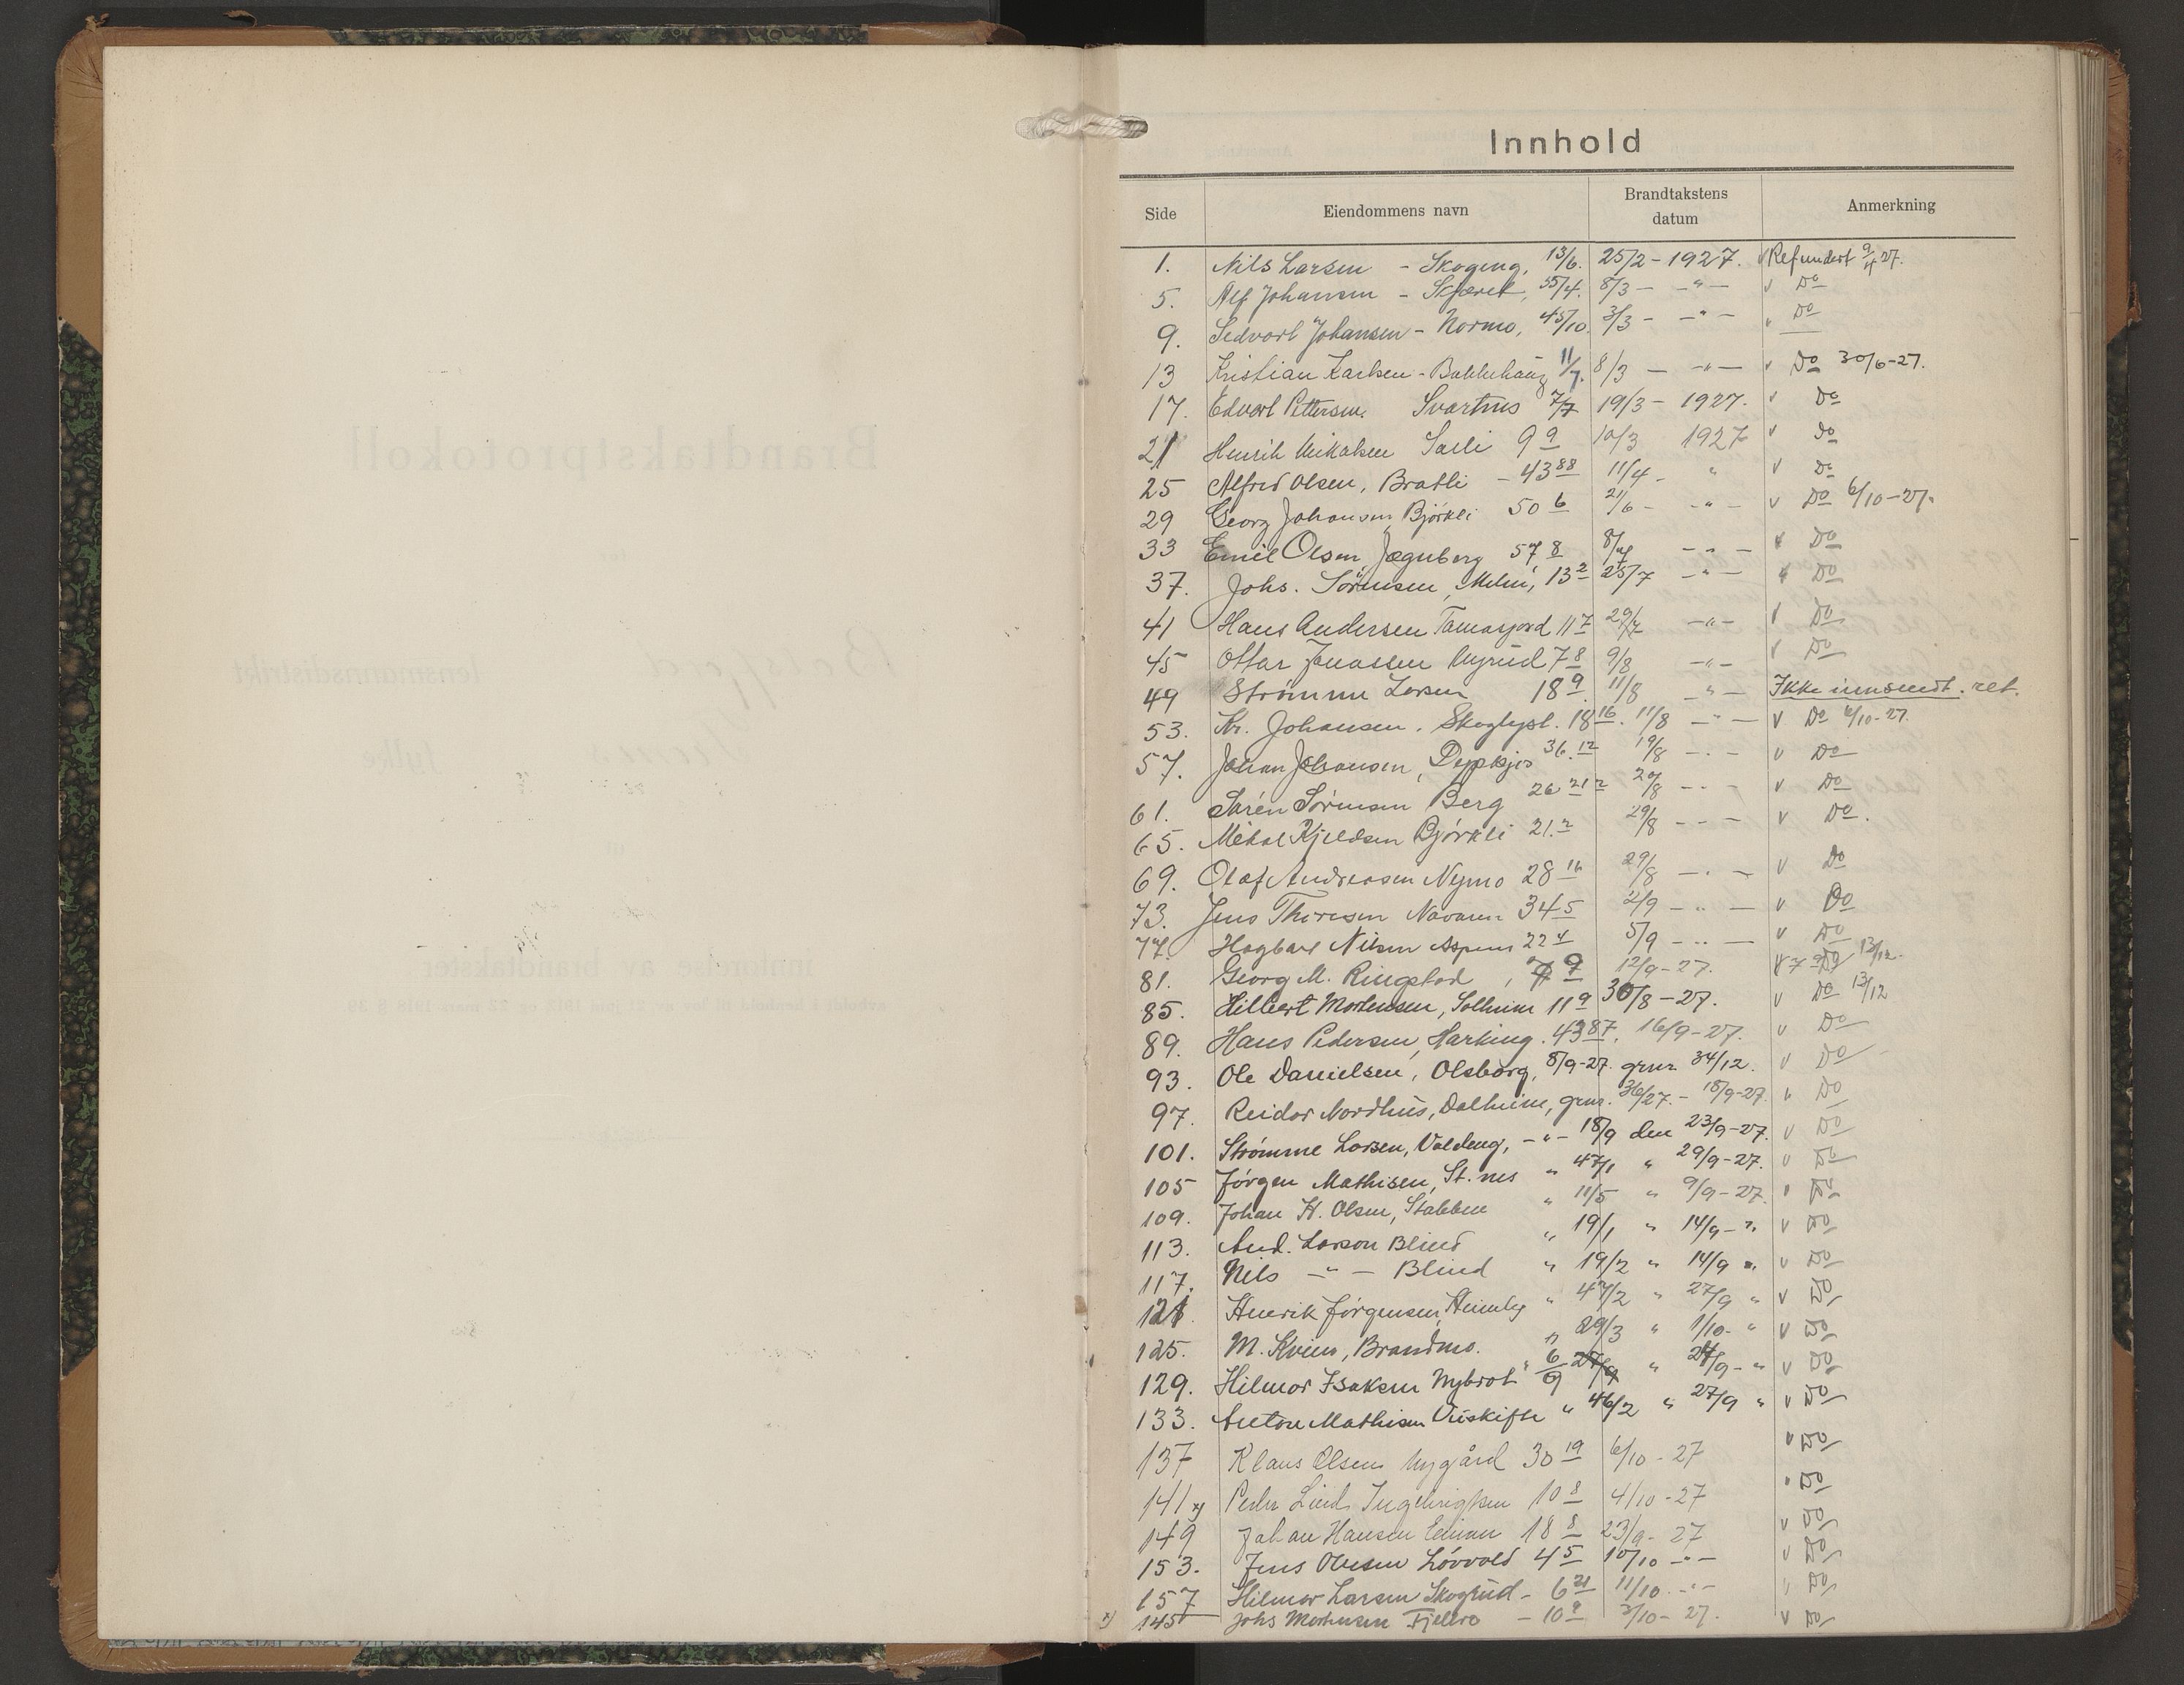 Innhold
Side Eiendommens navn Brandtakstens datum Anmerkning
1. Nils Larsen - Skogeng, 13/6. 25/2 - 1927. v Refundert 9/4 27.
5. Alf Johansen - 55/4. 8/3 - -"- v Do
9. Sedvart Johansen - Normo, 45/10. 3/3 - -"- v Do
13 Kristian Karlsen - Bakkehaug 11/7. 8/3 - -"- v Do 30/6-27.
17. Edvart Pettersen. Svartnes 7/7 19/3 - 1927. v Do
21 Henrik Mikalsen 9 9 10/3 1927 v Do
25 Alfred Olsen, Bratli - 43 88 11/4 - " v Do
29 Georg Johansen, Björkli 50 6 21/6 - -"- v Do 6/10-27.
33 Emil Olsen, Jægerberg 57 8 8/7 -"- v Do
37. Johs. Sörensen, Melen, 13 2 25/7 -"- v Do
41 Hans Andersen Tamasjord 11 7 29/7 -"- v Do
45 Ottar Jonassen Nyrud 7 8 9/8 -"- v Do
49 Strömme Larsen 18 9 11/8 -"- Ikke innsendt. ret.
53. Kr. Johansen. Skoglyst. 18 16. 11/8 -"- v Do 6/10-27.
57. Johan Johansen, 36. 12 19/8 -"- v Do
61. Sørén Sørensen Berg 26 21 2 29/8 -"- v Do
65. Mikal Kjeldsen Björkli 21. 2 29/8 -"- v Do.
69. Olaf Andreasen Nymo 28 16 29/8 -"- v Do
73. Jens Thoresen Navaren 34 5 2/9 -"- v Do
77. Hagbart Nilsen Aspenes 22 4 5/9 -"- v Do
81. Georg M. Ringstad, 7 9 12/9-27. v Do 13/12.
85. Hilbert Mortensen, Solheim 11 9 30/8-27. v Do 13/12
89. Hans Pedersen, 43 87. 16/9-27. v Do
93. Ole Danielsen, Olsborg, 8/9-27. gnr. 34/12. v Do
97. Reidar Nordhus, Dalheim, gnr. 36/27. - 15/9-27. v Do
101. Strömme Larsen, Valdeng, -"- 18/9 den 23/9-27. v Do
105 Jörgen Mathisen, St.nes " 47/1 " 29/9-27. v Do
109. Johan H. Olsen, Stabben " 11/5 " 9/9-27. v Do
113. And. Larsen Blind " 19/1 " 14/9-". v Do
117. Nils -"- Blind " 19/2 " 14/9 ". v Do
121. Henrik Jörgensen, Heimly " 47/2 " 27/9 " v Do
125. M. Kvien, Brandmo. " 29/3 " 1/10-" v Do
129. Hilmar Isaksen Nybrot " 6/9 " 24/9-" v Do
133. Anton Mathisen Utskifte " 46/2 " 27/9 " v Do
137 Klaus Olsen Nygård 30 19 6/10-27 v Do
141 x) Peder Lind Ingebrigtsen 10 8 4/10-27 v Do
149 Johan Hansen 18 8 23/9-27 v Do
153. Jens Olsen Lövvold 4 5 10/10 -"- v Do
157 Hilmar Larsen Skogrud - 6 21 11/10. -"- v Do
x) 145 Johs Mortensen Fjellro - 10 9 3/10-27. v Do